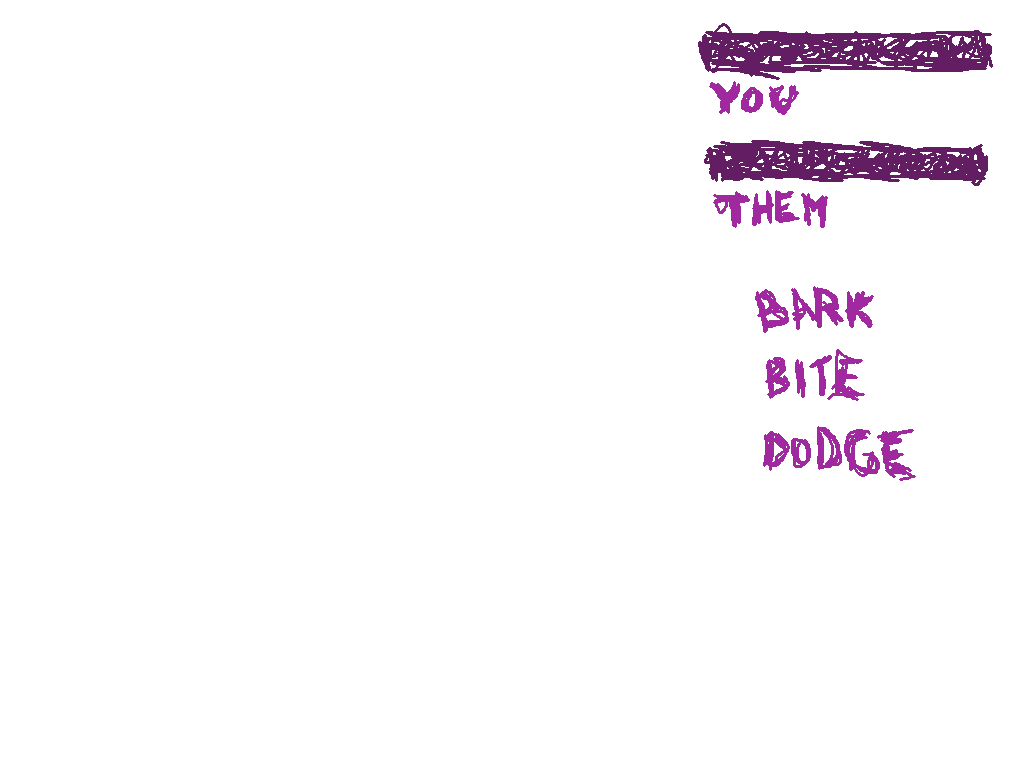 YOU
THEM
BARK
BITE
DODGE